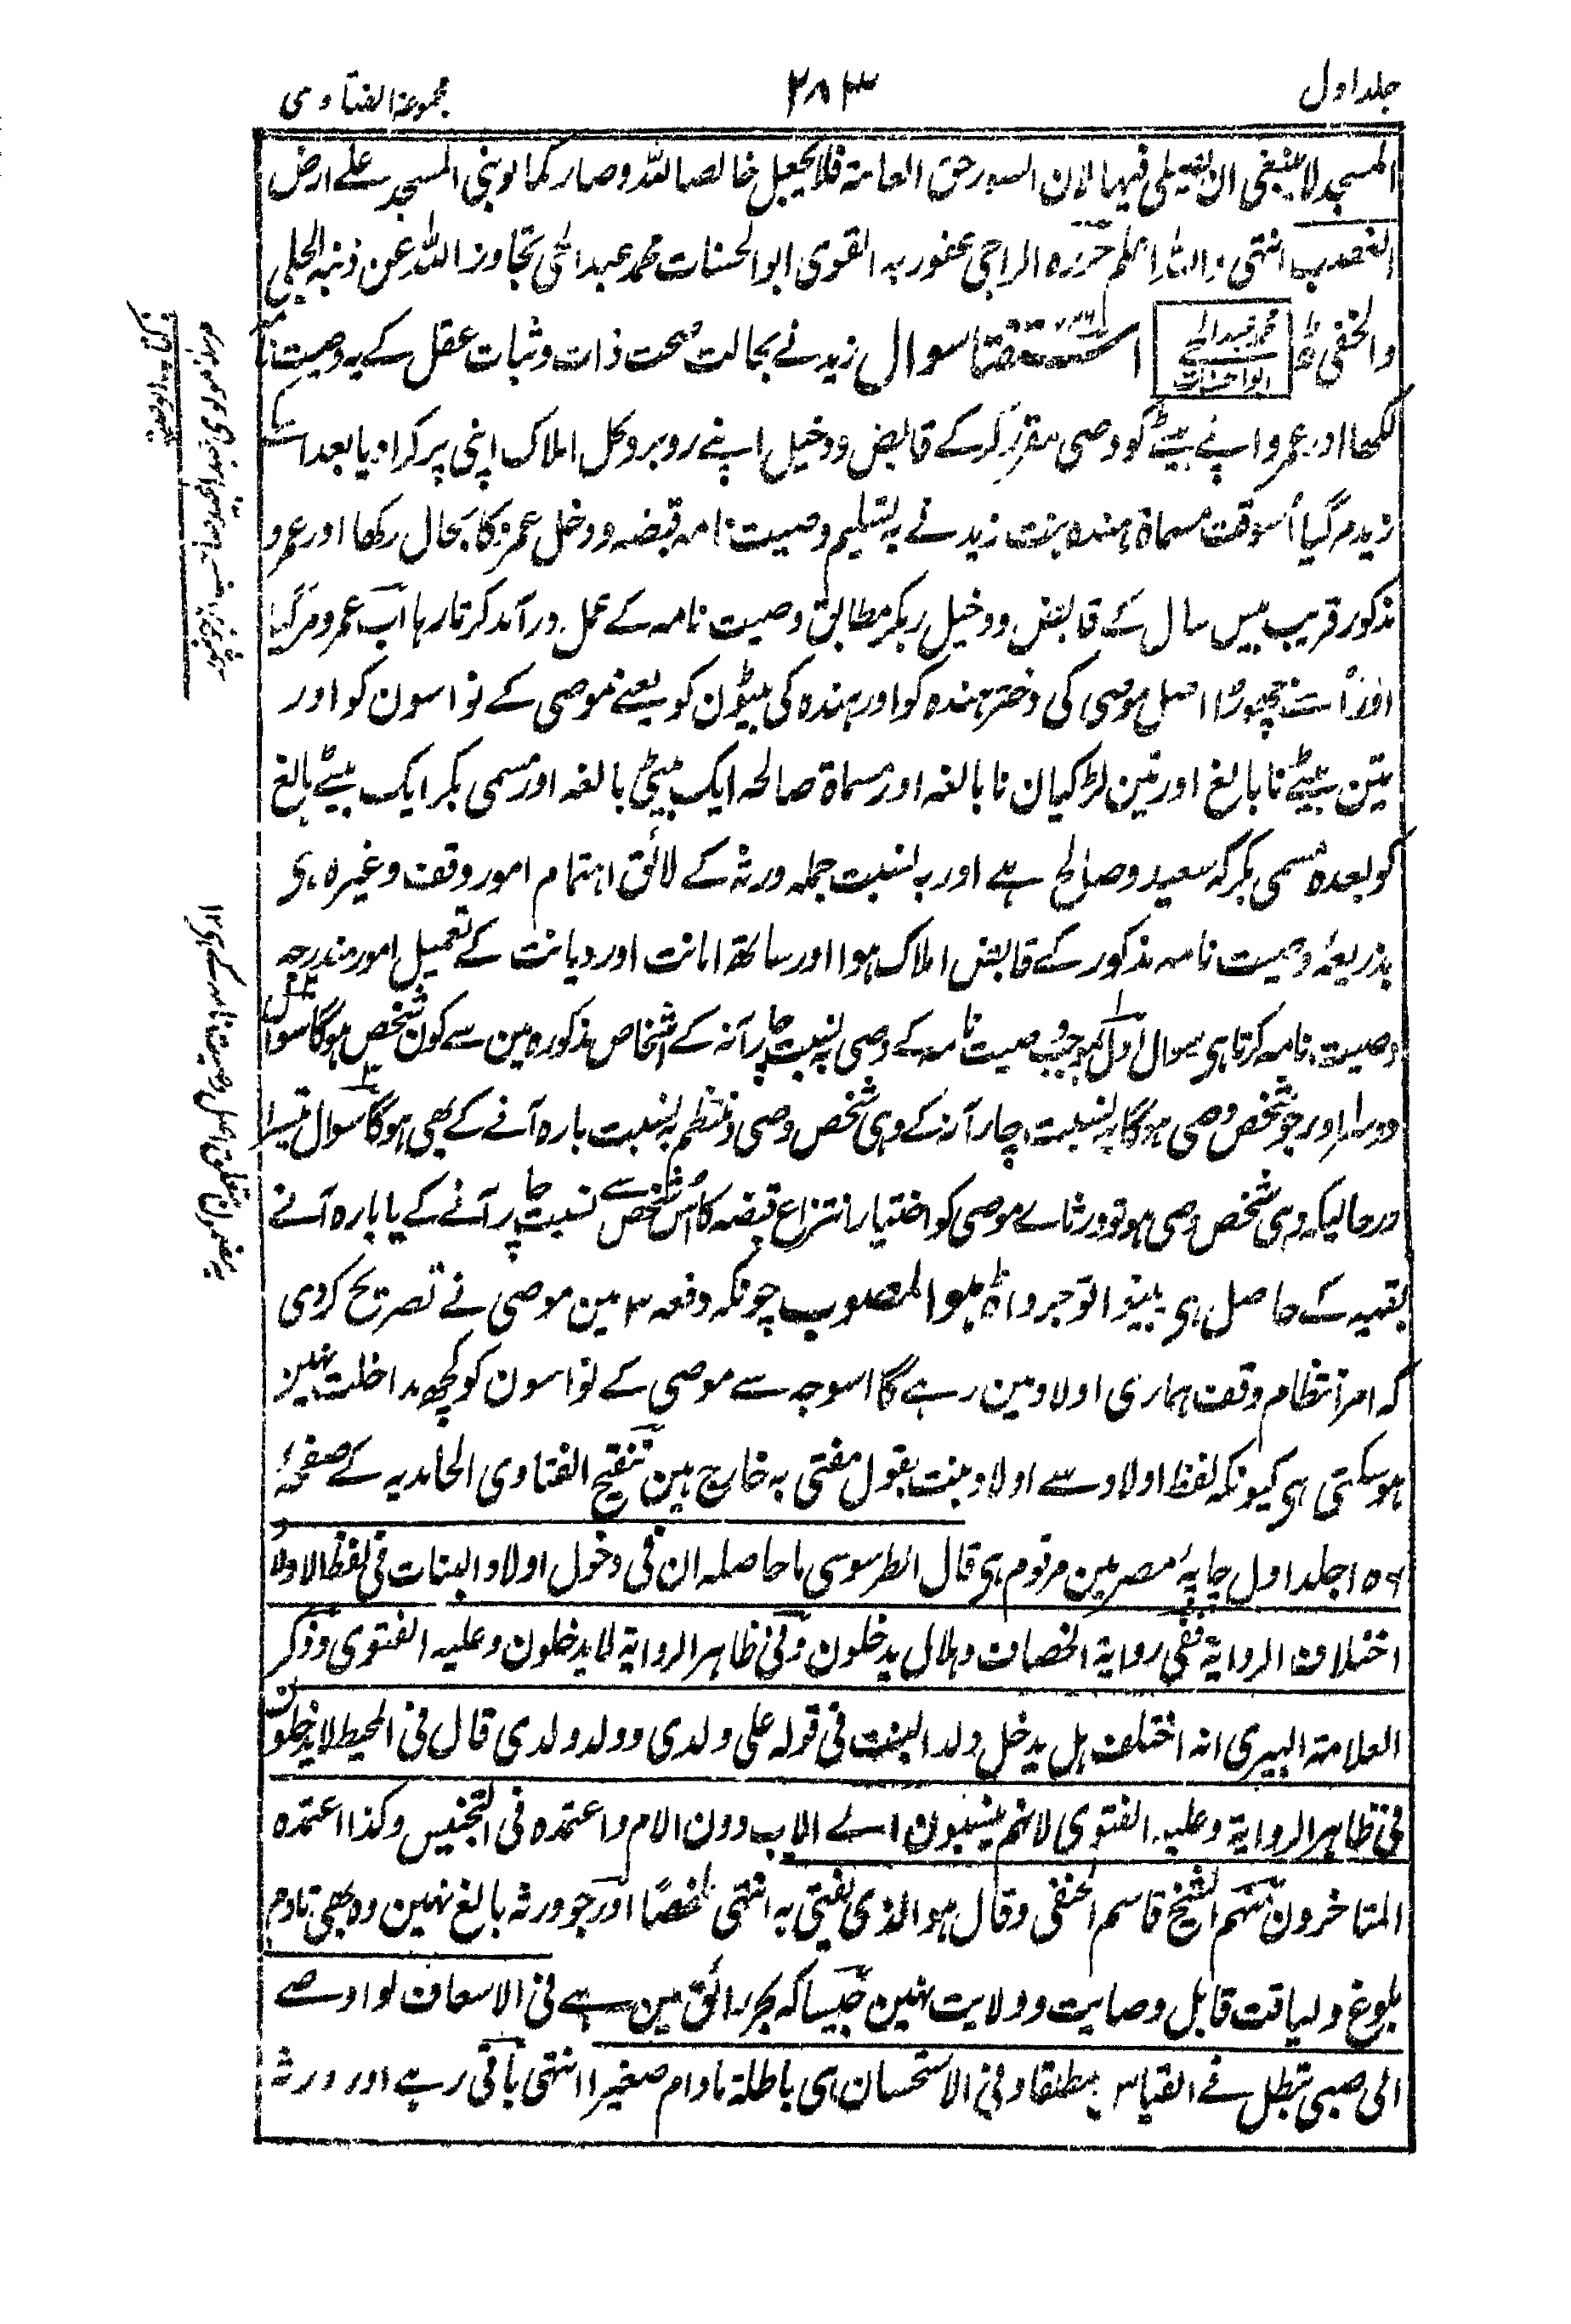 جلد اول
۲۸۳
مجموعۃ الفتاوی
المسجد لا ینبغی ان یصلی فیہا لان السور حق العامۃ فلا یجعل خالصا للہ وصار کما لو بنی المسجد علے ارض
الغصب انتہی واللہ اعلم حررہ الراجی عفو ربہ القوی ابو الحسنات محمد عبد الحی تجاوز اللہ عن ذنبہ الجلی
والخفی محمد عبد الحی ابو الحسنات استفتا سوال زید نے بحالت صحت ذات وثبات عقل کے یہ وصیت نامہ
لکھا اور عمرو اپنے بیٹے کو وصی مقرر کرکے قابض ودخیل اپنے روبرو کل املاک اپنی پر کرا دیا بعد اسکے
زید مرگیا اُسوقت مسماۃ ہندہ بنت زید نے بہ تسلیم وصیت نامہ قبضہ ودخل عمرو کا بحال رکھا اور عمرو
مذکور قریب بیس سال کے قابض ودخیل رہکر مطابق وصیت نامہ کے عمل درآمد کرتا رہا اب عمرو مرگیا
اور اُسنے چھوڑا اصل موصی کی دختر ہندہ کو اور ہندہ کی بیٹون کو یعنے موصی کے نواسون کو اور
تین بیٹے نابالغ اور تین لڑکیان نابالغہ اور مسماۃ صالحہ ایک بیٹی بالغہ اور مسمی بکر ایک بیٹے بالغ
کو بعدہ مسمی بکر کہ سعید وصالح ہے اور بہ نسبت جملہ ورثہ کے لائق اہتمام امور وقف وغیرہ ہی
بذریعہ وصیت نامہ مذکور کے قابض املاک ہوا اور ساتھ امانت اور دیانت کے تعمیل امور مندرجہ
وصیت نامہ کرتا ہی سوال اول بموجب وصیت نامہ کے وصی بہ نسبت چار آنہ کے اشخاص مذکورہ مین سے کون شخص ہوگا سوال
دوسرا اور جو شخص وصی ہوگا بہ نسبت چار آنہ کے وہی شخص وصی ومنتظم بہ نسبت بارہ آنے کے بھی ہوگا سوال تیسرا
درحالیکہ وہی شخص وصی ہو تو ورثاے موصی کو اختیار انتزاع قبضہ کا اُس شخص سے نسبت چار آنے کے یا بارہ آنے
بقیہ کے حاصل ہی بینوا توجروا ہو المصوب چونکہ دفعہ ۳ مین موصی نے تصریح کردی
کہ امر انتظام وقف ہماری اولاد مین رہے گا اسوجہ سے موصی کے نواسون کو کچھ مداخلت نہین
ہوسکتی ہی کیونکہ لفظ اولاد سے اولاد بنت بقول مفتی بہ خارج ہین تنقیح الفتاوی الحامدیہ کے صفحہٴ
۱۵۶ جلد اول چاپہٴ مصر مین مرقوم ہی قال الطرسوسی ما حاصلہ ان فی دخول اولاد البنات فی لفظ الاولاد
اختلاف الروایۃ ففی روایۃ الخصاف وہلال یدخلون وفی ظاہر الروایۃ لا یدخلون وعلیہ الفتوی وذکر
العلامۃ البیری انہ اختلف ہل یدخل ولد البنت فی قولہ علی ولدی وولد ولدی قال فی المحیط لا یدخلون
فی ظاہر الروایۃ وعلیہ الفتوی لانہم ینسبون الے الاب دون الام واعتمدہ فی التجنیس وکذا اعتمدہ
المتاخرون منہم الشیخ قاسم الحنفی وقال ہو الذی یفتی بہ انتہی ملخصًا اور جو ورثہ بالغ نہین وہ بھی تادم
بلوغ ولیاقت قابل وصایت وولایت نہین جیسا کہ بحر رائق مین ہے فی الاسعاف لو اوصے
الی صبی تبطل فے القیاس مطلقا وفی الاستحسان ہی باطلۃ مادام صغیرا انتہی باقی رہے اور ورثہ